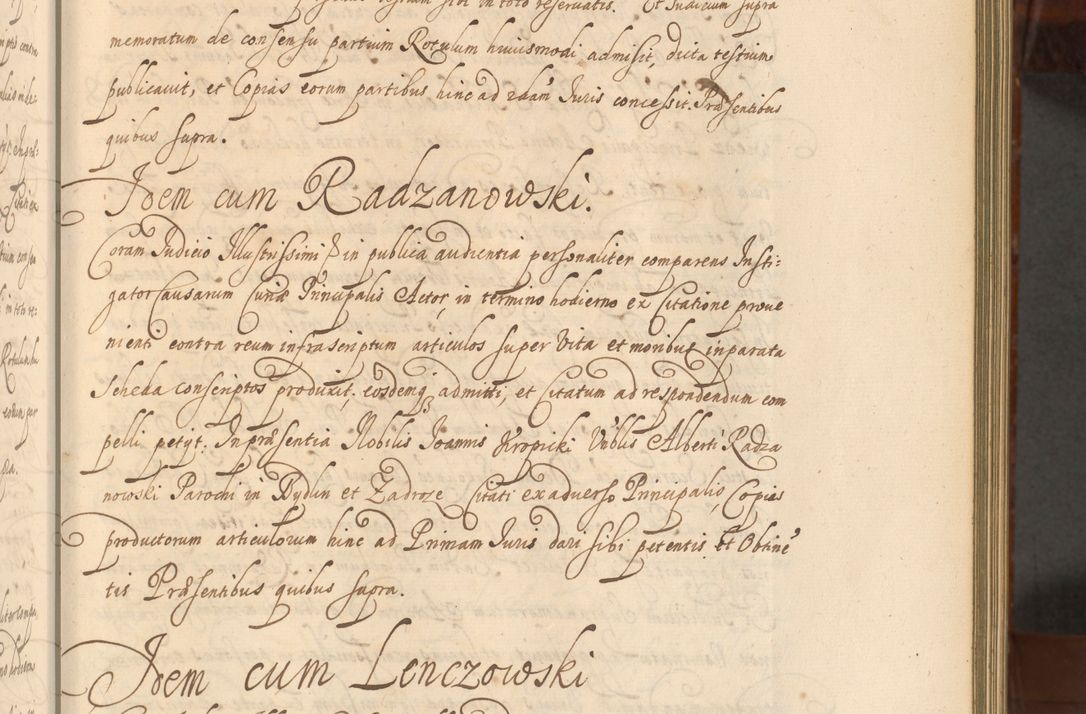 sibi in toto reservatis. Et Iudicium supra
memoratum de consensu partium Rotulum huiusmodi admisit, dicta testium
publicavit, et Copias eorum partibus hinc ad 2dam Iuris concessit. Præsentibus
quibus supra.
Idem cum Radzanowski.
Coram Iudicio Illustrissimi & in publica audientia personaliter comparens Insti-
gator Causarum Curiæ Principalis Actor, in termino hodierno ex Citatione prove
nienti contra reum infrascriptum articulos super Vita et moribus in parata
Scheda conscriptos produxit, eosdemq3 admitti, et Citatum ad respondendum com
pelli petyt. In præsentia Nobilis Ioannis Kropicki Vnblis Alberti Radza
nowski Parochi in Bydlin et Zadroze Citati ex adverso Principalis Copias
productorum articulorum hinc ad Primam Iuris dari sibi petentis et Obtine
tis Præsentibus quibus supra.
Idem cum Lenczowski